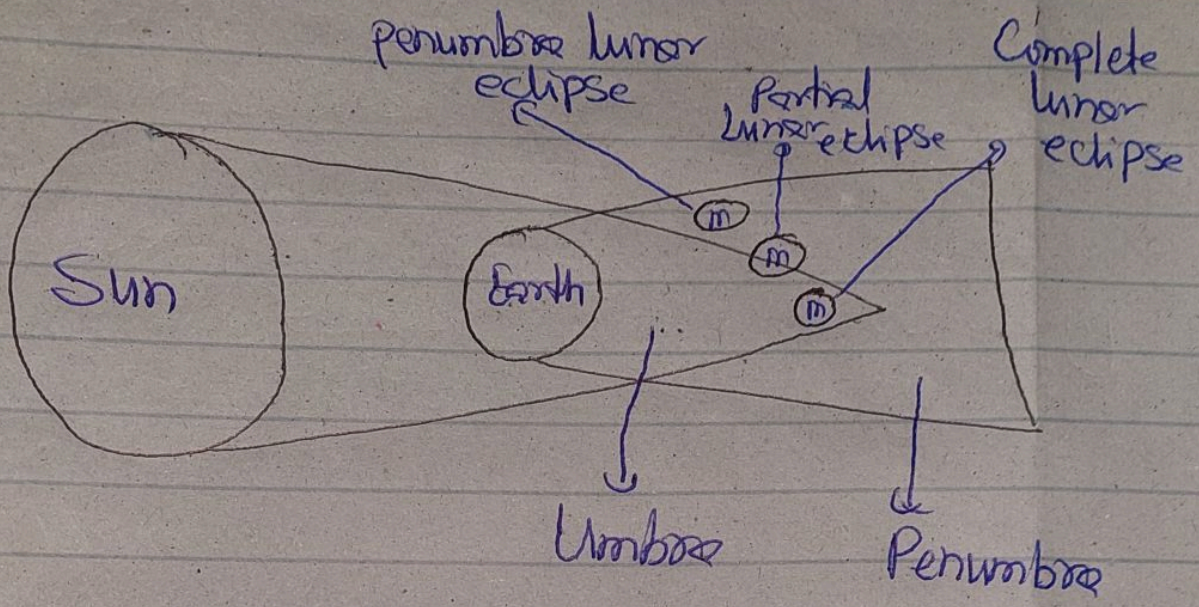 penumbra lunar
eclipse
Partial
Lunar eclipse
Complete
lunar
eclipse
Sun
Earth
m
m
m
Umbra
Penumbra